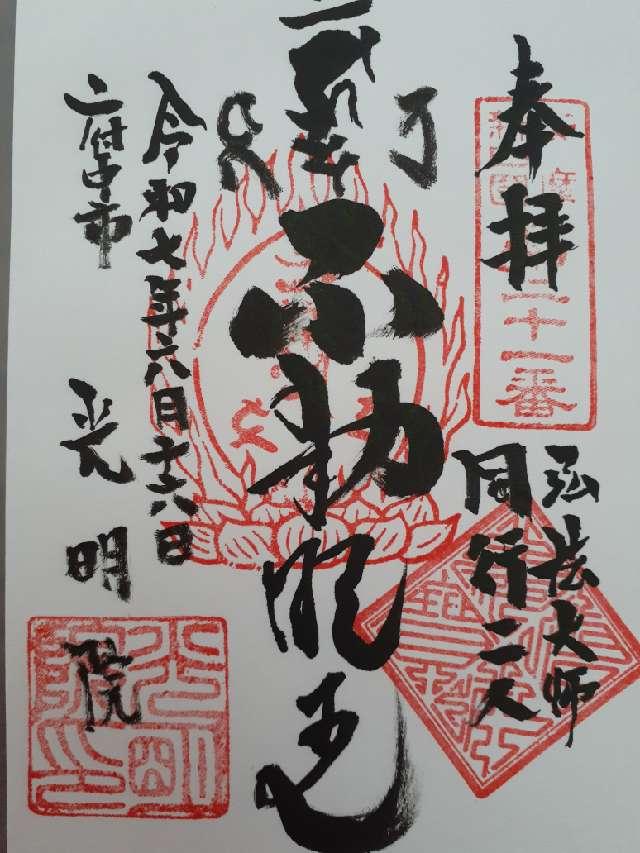 奉拝
二十一番
弘法大師
同行二人
不動明王
令和七年六月十六日
府中市
光明
院